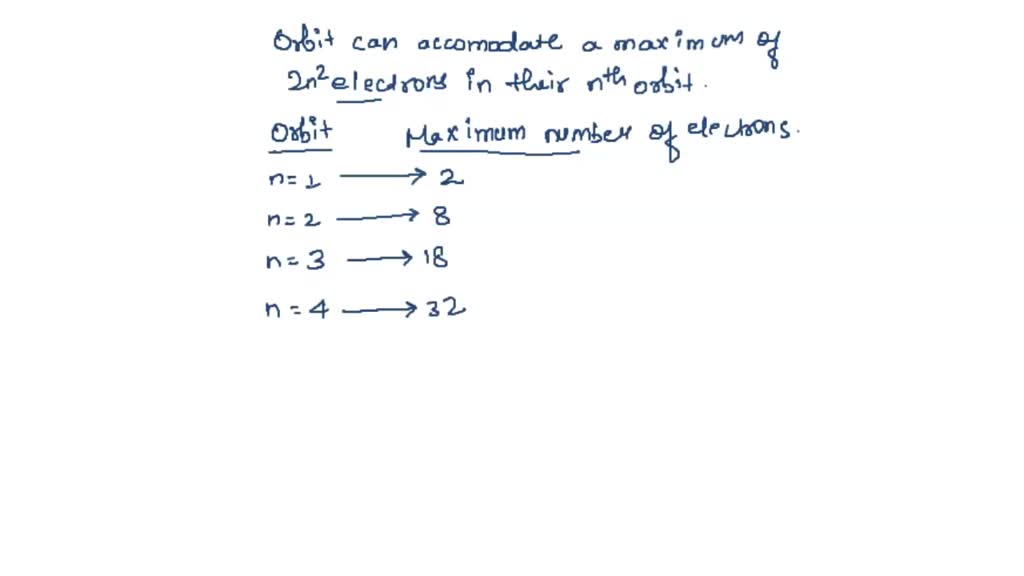 Orbit can accomodate a maximum of
2n² electrons in their nth orbit.
Orbit Maximum number of electrons.
n=1 → 2
n=2 → 8
n=3 → 18
n=4 → 32